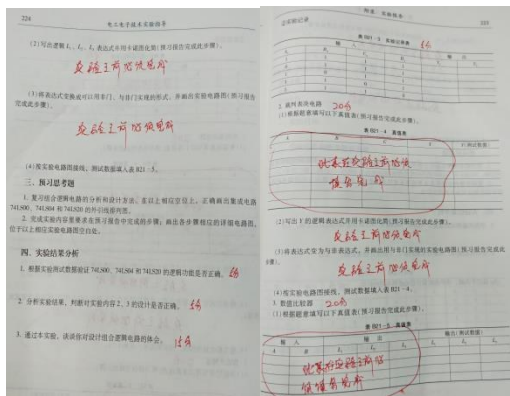 224
电工电子技术实验指导
(2)写出逻辑 L₁、L₂、L₃ 表达式并用卡诺图化简(预习报告完成此步骤)。
实验之前必须完成
(3)将表达式变换成可以用非门、与非门实现的形式，并画出实验电路图(预习报告
完成此步骤)。
实验之前必须完成
(4)按实验电路图接线，测试数据填入表 B21-5。
三、预习思考题
1. 复习组合逻辑电路的分析和设计方法，在以上相应空位上，正确画出集成电路
74LS00、74LS04 和 74LS20 的外引线排列图。
2. 完成实验内容里要求在预习报告中完成的步骤；画出各步骤相应的详细电路图，
位于以上相应实验电路图空白处。
四、实验结果分析
1. 根据实验测试数据验证 74LS00、74LS04 和 74LS20 的逻辑功能是否正确。
2. 分析实验结果，判断对实验内容 2、3 的设计是否正确。 5分
3. 通过本实验，谈谈你对设计组合逻辑电路的体会。 15分
附录 实验报告
225
表 B21-3 实验记录表
输 入
输 出
2. 裁判表决电路 20分
(1)根据题意填写以下真值表(预习报告完成此步骤)。
表 B21-4 真值表
A
B
C
(测试数据)
此表在实验之前必须
填写完成
(2)写出 Y 的逻辑表达式并用卡诺图化简(预习报告完成此步骤)。
实验之前必须完成
(3)将表达式变为与非表达式，并画出用与非门实现的实验电路图(预习报告完成此
步骤)。
实验之前必须完成
(4)按实验电路图接线，测试数据填入表 B21-4。
3. 数值比较器 20分
(1)根据题意填写以下真值表(预习报告完成此步骤)。
表 B21-5 真值表
输 入
输 出
输出(测试数据)
A
B
L₁
L₂
L₃
L₁
L₂
L₃
此表在实验之前必
须填写完成